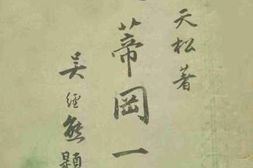 天松著
蒂岡一
吳經熊題